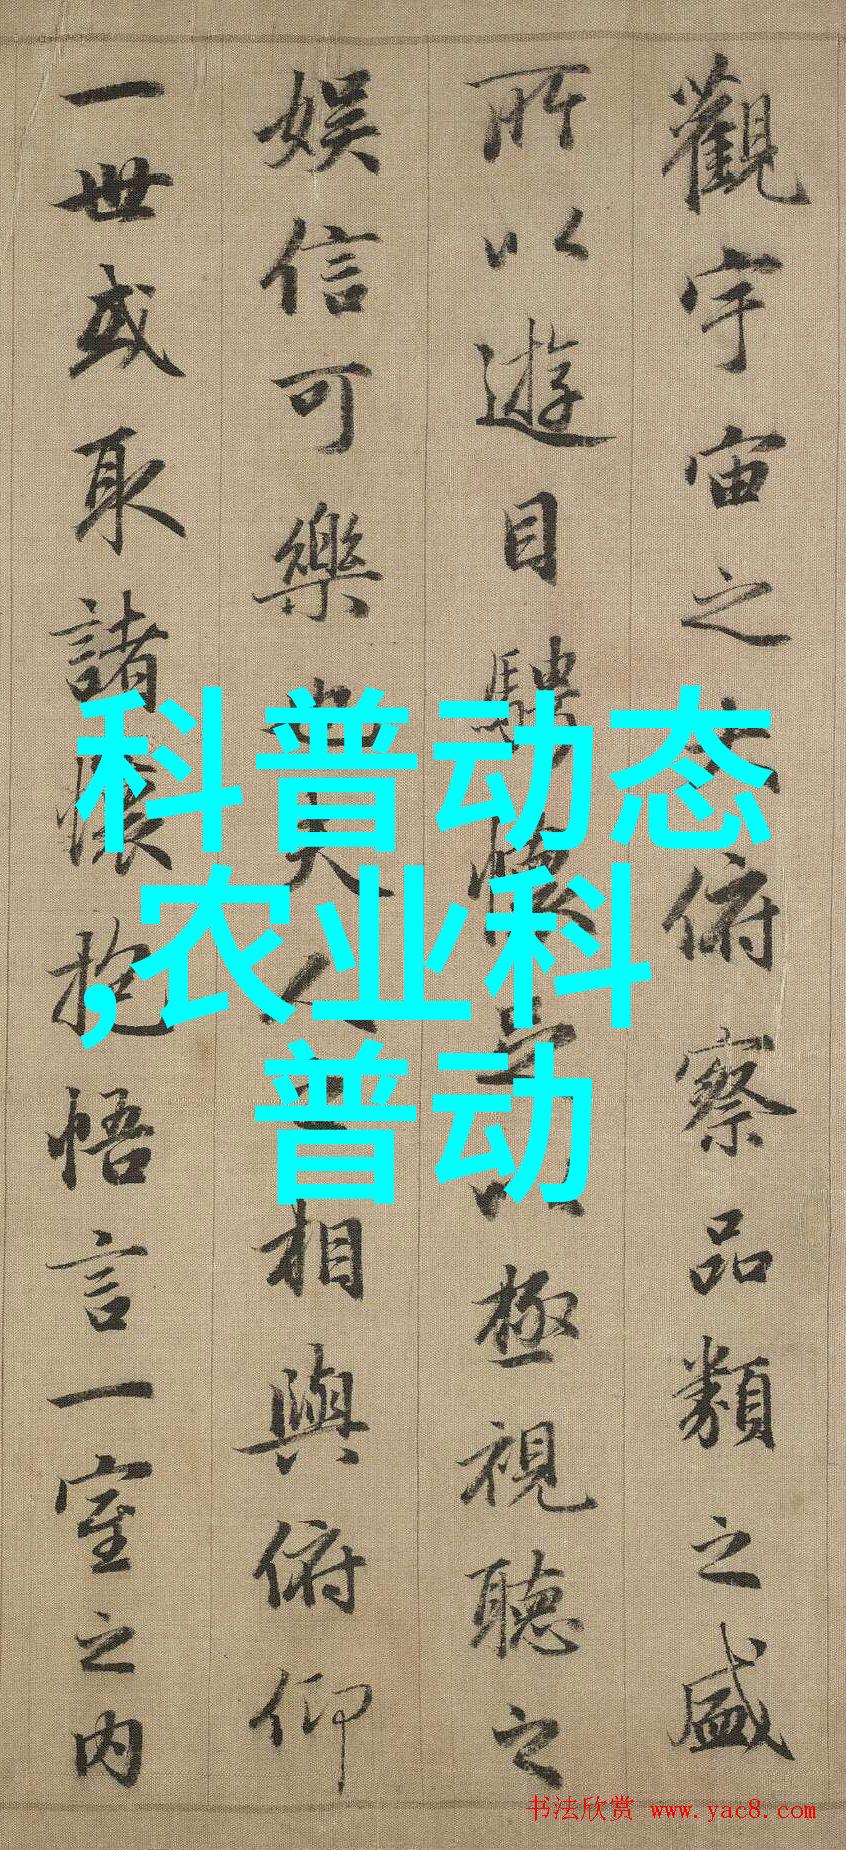 觀宇宙之大俯察品類之盛
所以遊目騁懷足以極視聽之
娛信可樂也夫人之相與俯仰
一世或取諸懷抱悟言一室之内
科普动态
,农业科
普动
书法欣赏 www.yac8.com